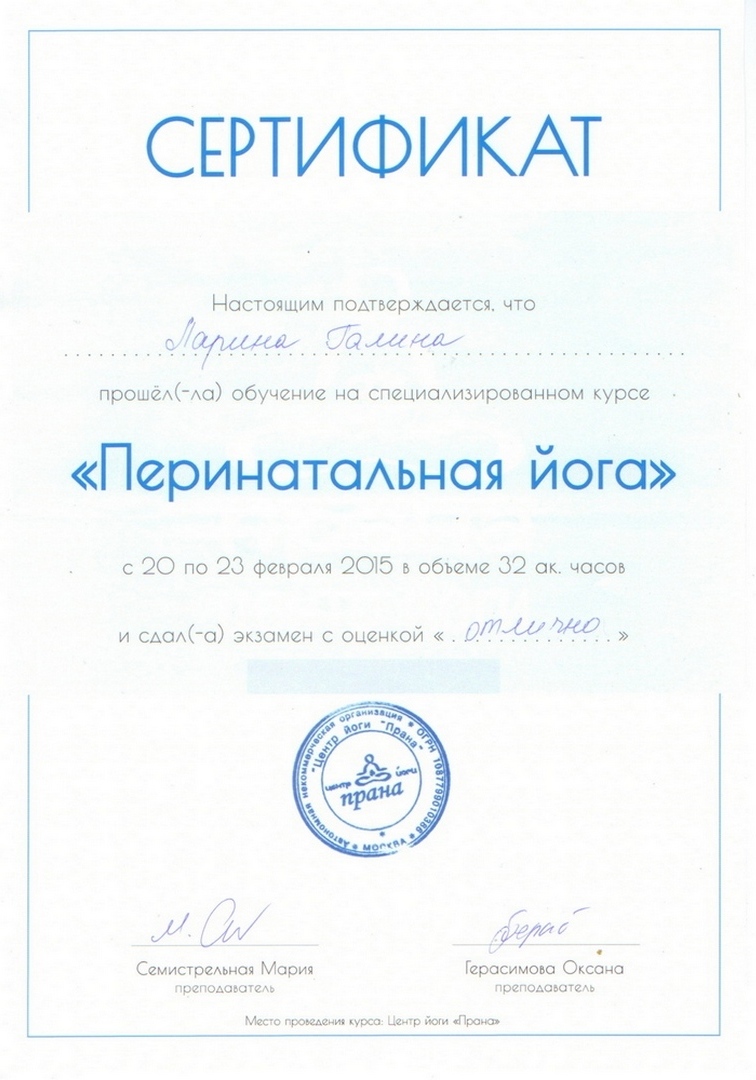 СЕРТИФИКАТ
Настоящим подтверждается, что
Ларина Галина
прошёл(-ла) обучение на специализированном курсе
«Перинатальная йога»
с 20 по 23 февраля 2015 в объеме 32 ак. часов
и сдал(-а) экзамен с оценкой « отлично »
Автономная некоммерческая организация * ОГРН 1087799010366 * МОСКВА *
"Центр йоги "Прана"
центр йоги
прана
М. Се
Семистрельная Мария
Герасимова Оксана
преподаватель
преподаватель
Место проведения курса: Центр йоги «Прана»